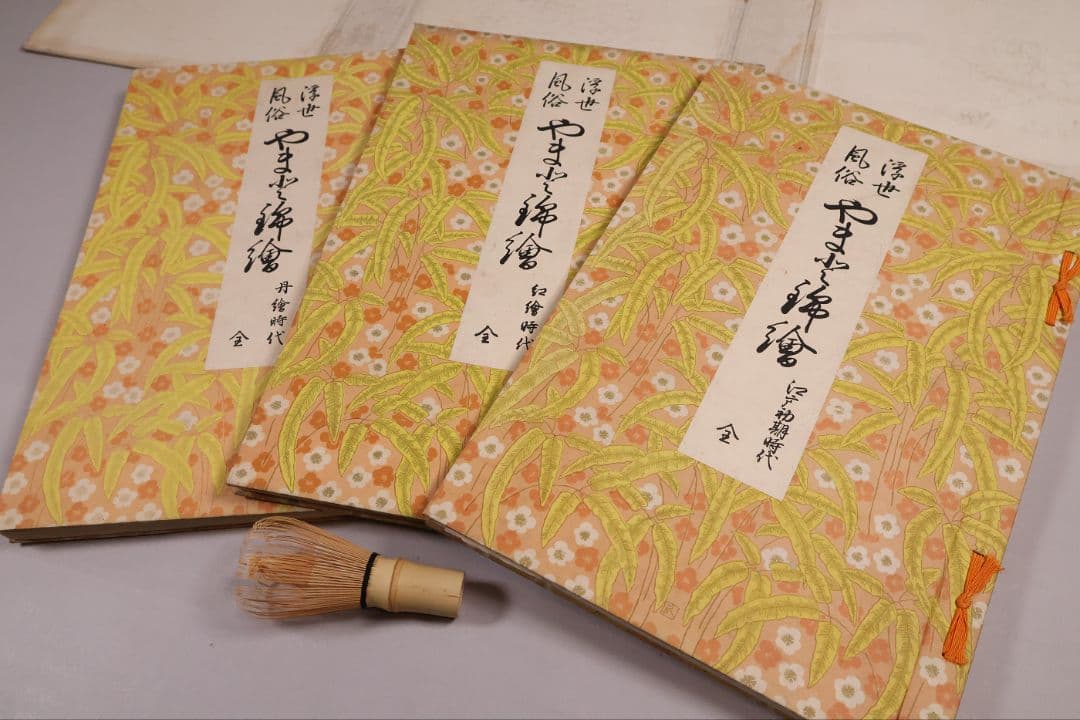 浮世
風俗
やまと錦繪
丹繪時代
全
浮世
風俗
やまと錦繪
紅繪時代
全
浮世
風俗
やまと錦繪
江戸初期時代
全